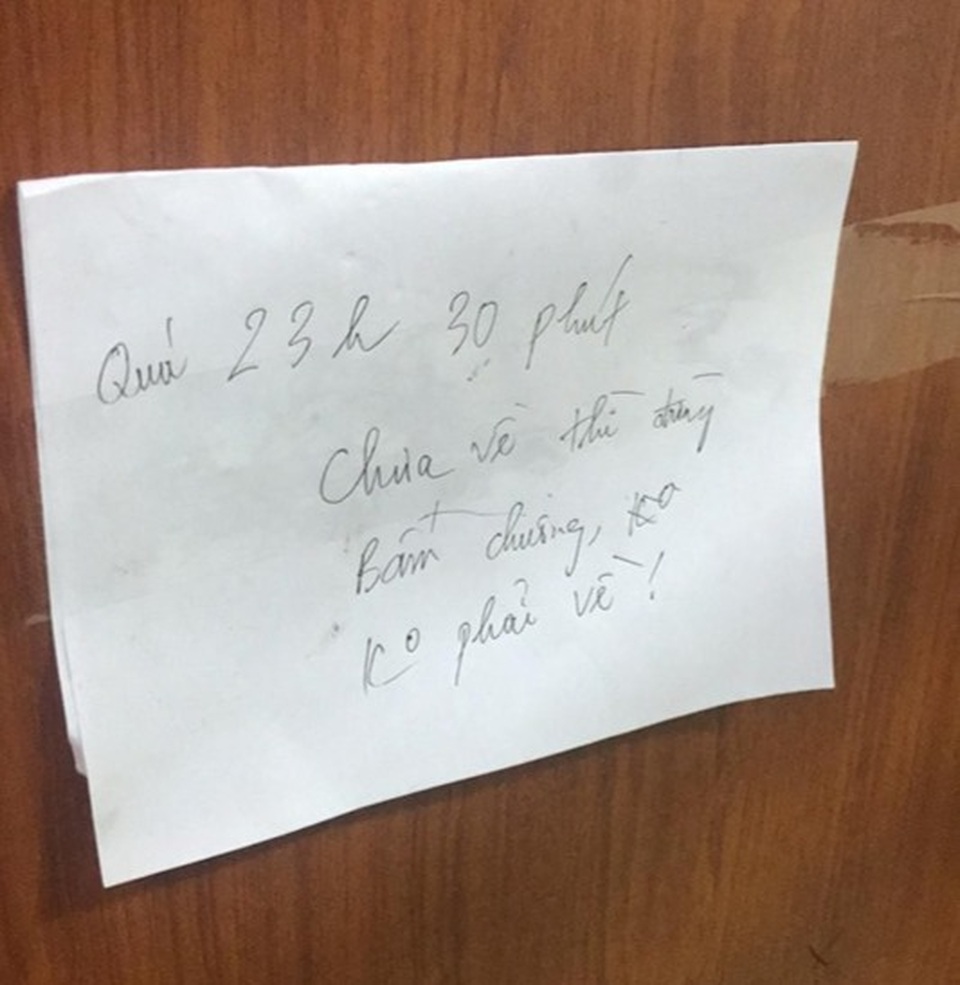 Quá 23h 30 phút
Chưa về thì đừng
Bấm chuông, Ko
Ko phải về!